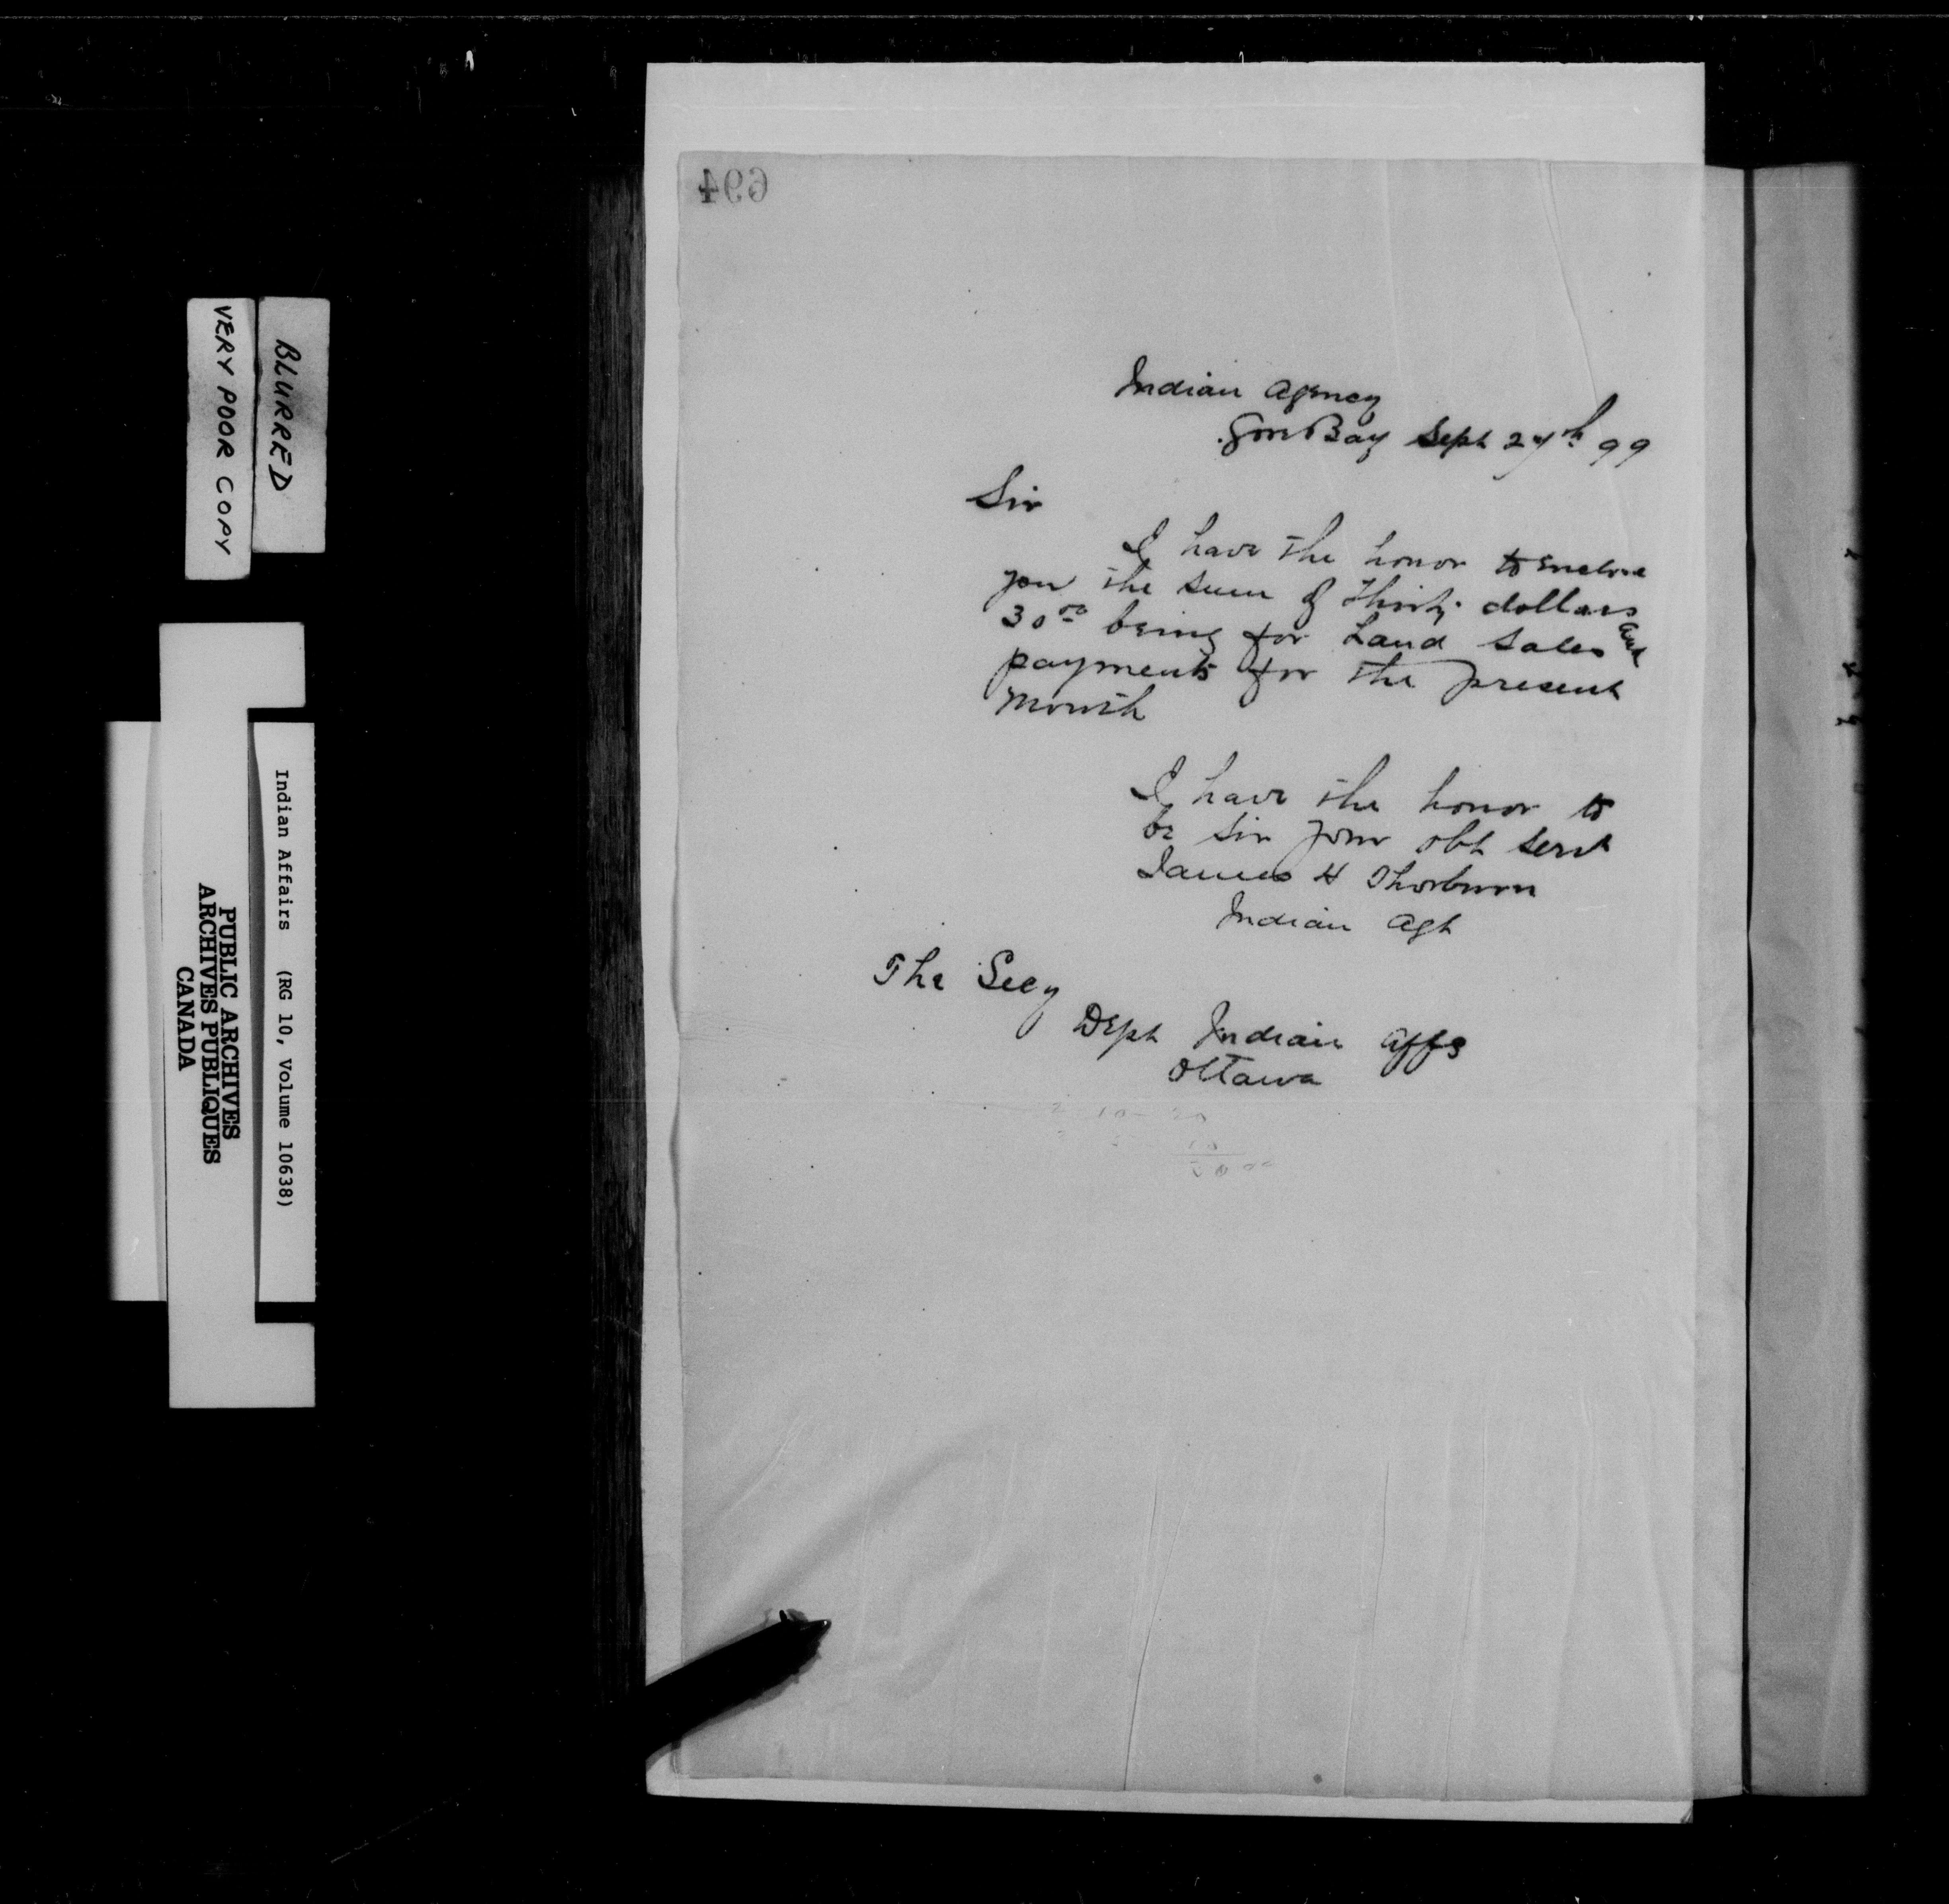 694
Indian Agency
Gore Bay Sept 27th 99
Sir
I have the honor to enclose
you the sum of Thirty dollars
30 00 being for Land Sales and
payments for the present
month
I have the honor to
be Sir Your obt servt
James H Thorburn
Indian Agt
The Secy
Dept Indian Affs
Ottawa
10 20
10
BLURRED
VERY POOR COPY
Indian Affairs (RG 10, Volume 10638)
PUBLIC ARCHIVES
ARCHIVES PUBLIQUES
CANADA